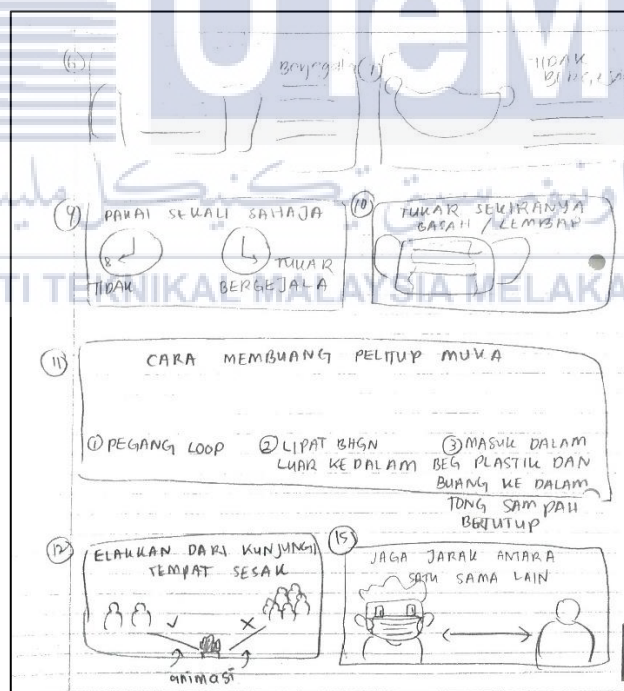 UTeM
(6) (1)
TIDAK
(9) PAKAI SEKALI SAHAJA
8
TUKAR
TIDAK BERGEJALA
(10) TUKAR SEKIRANYA
BASAH / LEMBAP
TI TEKNIKAL MALAYSIA MELAKA
(11) CARA MEMBUANG PELITUP MUKA
① PEGANG LOOP
② LIPAT BHGN
LUAR KEDALAM
③ MASUK DALAM
BEG PLASTIK DAN
BUANG KE DALAM
TONG SAMPAH
BERTUTUP
(12) ELAKKAN DARI KUNJUNGI
TEMPAT SESAK
animasi
(15) JAGA JARAK ANTARA
SATU SAMA LAIN